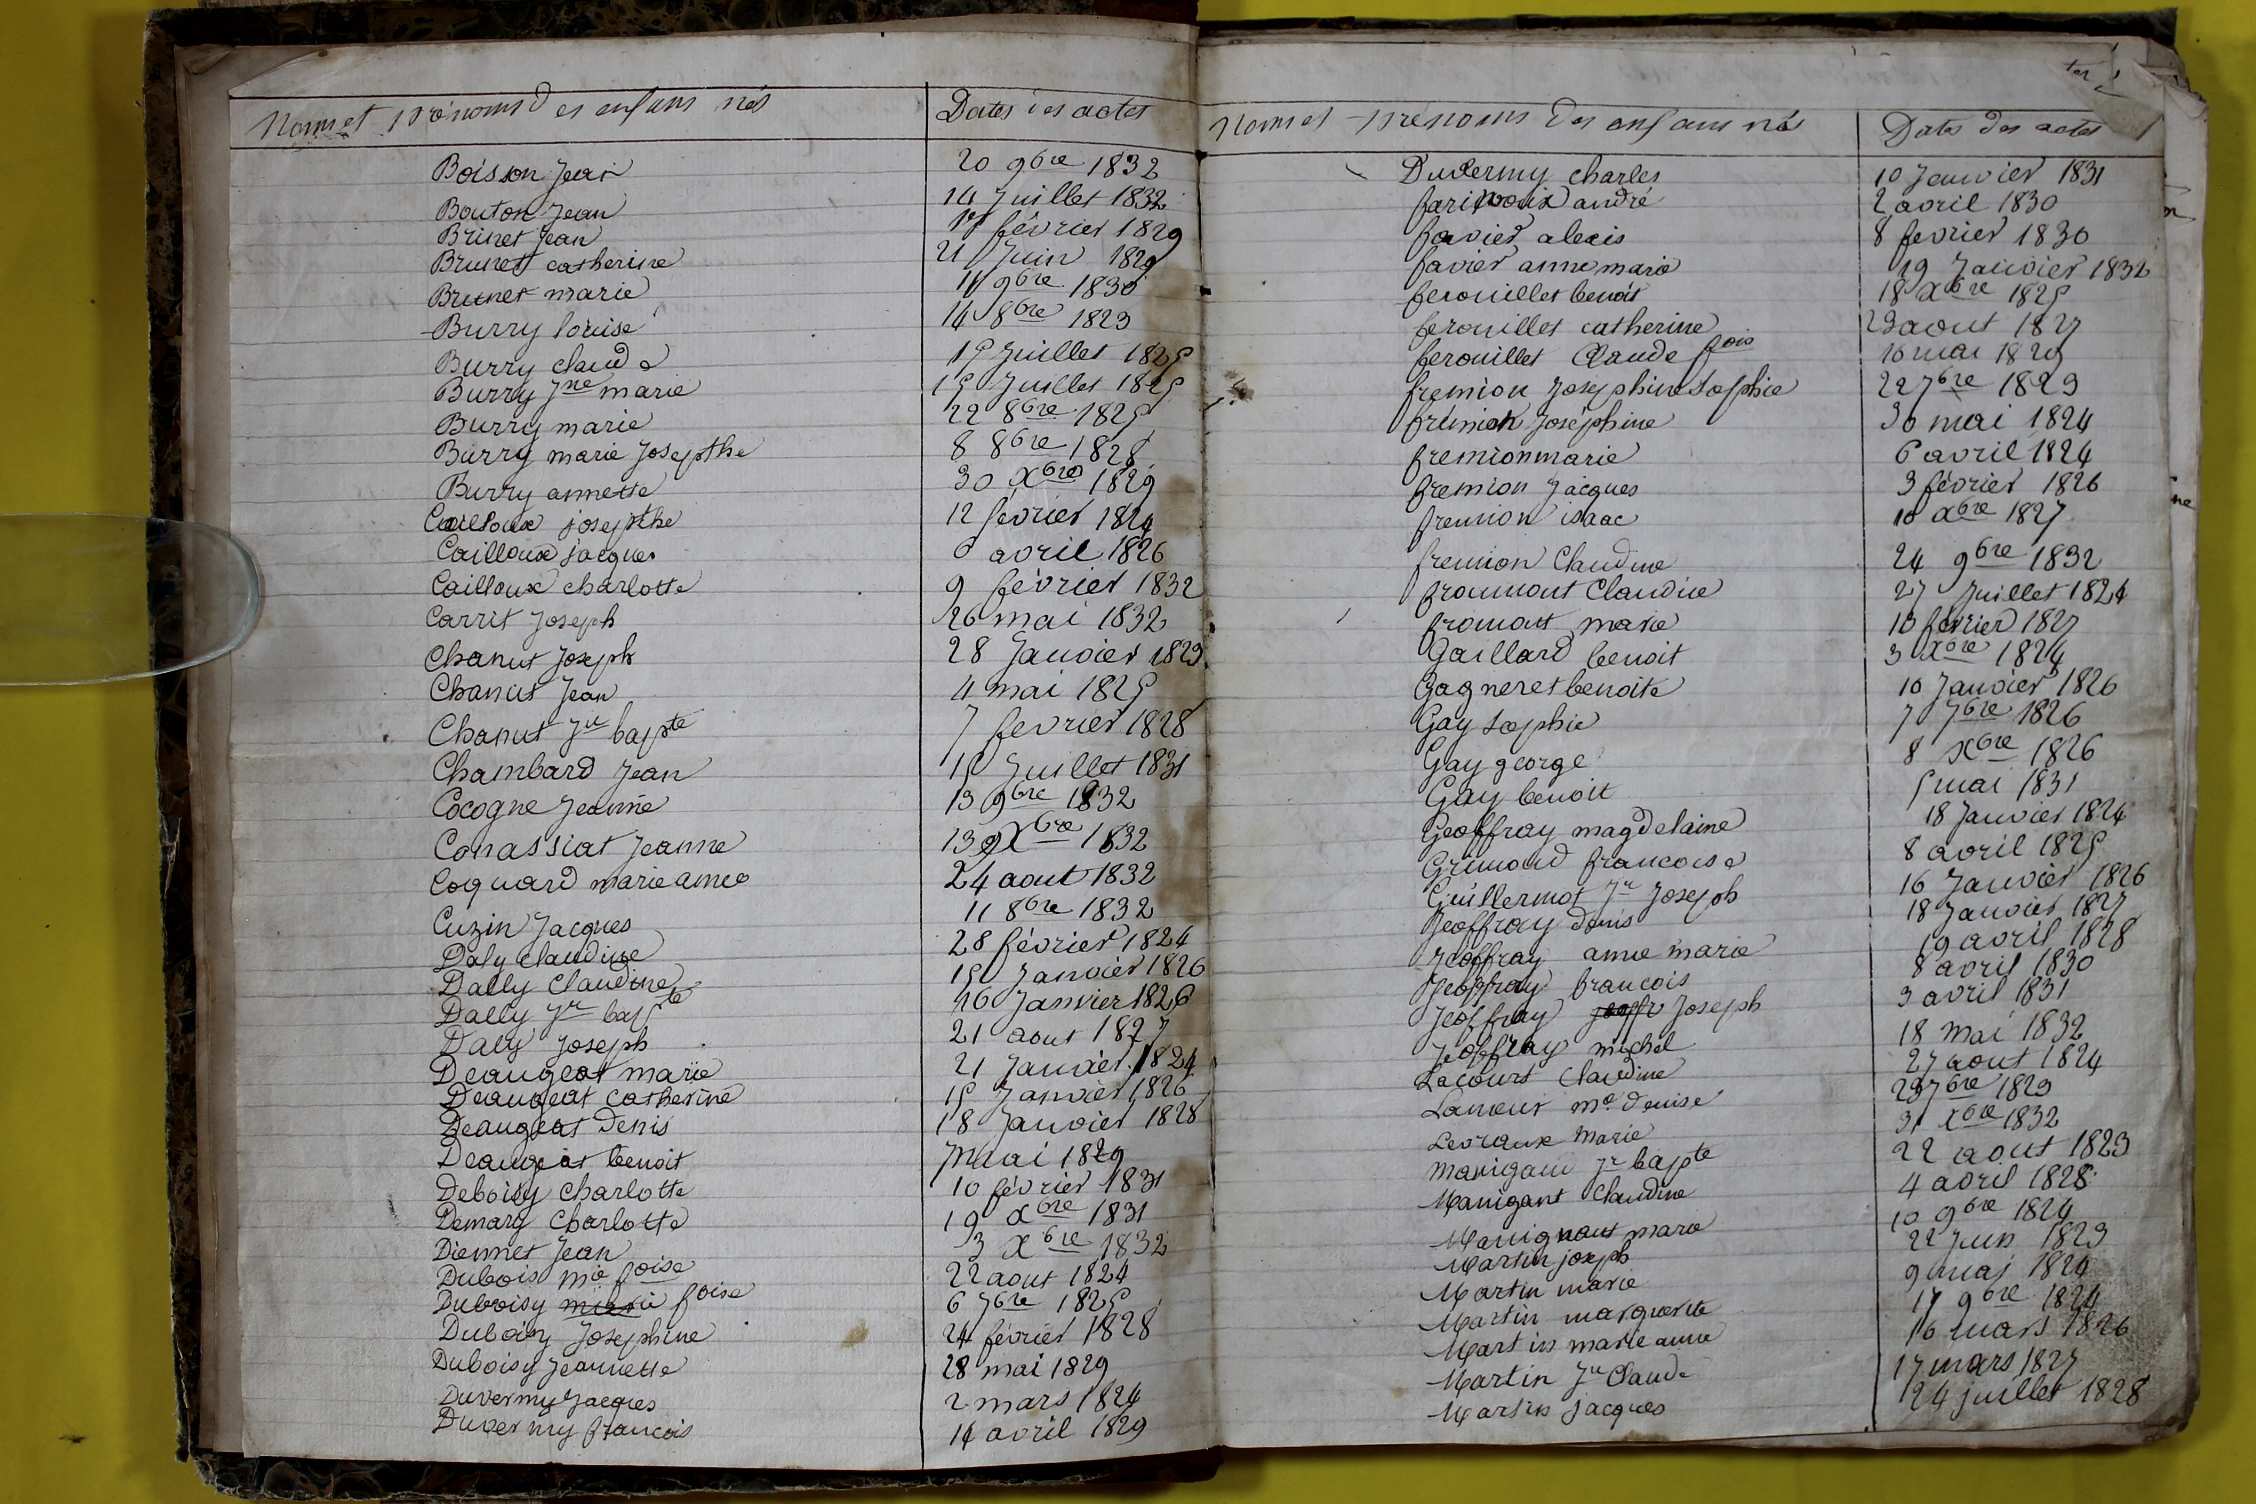 Noms et prénoms des enfans nés Dates des actes
Boisson Jean 20 9bre 1832
Bouton Jean 14 Juillet 1832
Brinet Jean 17 février 1829
Brunet catherine 21 Juin 1829
Brunet marie 11 9bre 1830
Burry louise 14 8bre 1823
Burry claude 15 Juillet 1825
Burry Jne marie 15 Juillet 1825
Burry marie 22 8bre 1825
Burry marie Josepthe 8 8bre 1828
Burry annette 30 Xbre 1829
Cailloux josepthe 12 février 1824
Cailloux jacques 6 avril 1826
Cailloux charlotte 9 février 1832
Carrit Joseph 26 mai 1832
Chanut Joseph 28 Janvier 1823
Chanut Jean 4 mai 1825
Chanut Jn bapte 7 fevrier 1828
Chambard Jean 15 Juillet 1831
Cocogne Jeanne 13 9bre 1832
Conassiat Jeanne 13 Xbre 1832
Coquard marie aimée 24 aout 1832
Cuzin Jacques 11 8bre 1832
Daly claudine 28 février 1824
Dally Claudine 15 Janvier 1826
Dally Jn bapte 16 Janvier 1826
Daly Joseph 21 aout 1827
Deaugeat marie 21 Janvier 1824
Deaugeat catherine 15 Janvier 1826
Deaugeat Denis 18 Janvier 1828
Deaugeat benoit 7 mai 1829
Deboisy Charlotte 10 février 1831
Demary Charlotte 19 xbre 1831
Diennet Jean 3 Xbre 1832
Dubois mie foise 22 aout 1824
Duboisy foise 6 7bre 1825
Duboisy Josephine 24 février 1828
Duboisy Jeannette 28 mai 1829
Duvermy Jacques 2 mars 1824
Duvermy francois 14 avril 1829
Noms et prénoms des enfans nés Dates des actes
Duvermy charles 10 Janvier 1831
farinoux andré 2 avril 1830
favier alexis 8 fevrier 1830
favier anne marie 19 Janvier 1832
ferouillet benoit 18 xbre 1825
ferouillet catherine 23 aout 1827
ferouillet Claude fois 16 mai 1829
fremion Josephine Sophie 22 7bre 1823
frémion Joséphine 30 mai 1824
fremion marie 6 avril 1824
fremion Jacques 3 février 1826
fremion isaac 10 xbre 1827
fremion Claudine 24 9bre 1832
fromont Claudine 27 Juillet 1824
fromont marie 18 février 1827
Gaillard benoit 3 xbre 1824
Gagneret benoite 10 Janvier 1826
Gay Sophie 7 7bre 1826
Gay george 8 xbre 1826
Gay benoit 5 mai 1831
Geoffray magdelaine 18 Janvier 1824
Grimond francoise 8 avril 1825
Guillermot Jn Joseph 16 Janvier 1826
Jeoffray Denis 18 Janvier 1827
Jeoffray anne marie 19 avril 1828
Jeoffray francois 8 avril 1830
Jeoffray Joseph 3 avril 1831
Jeoffray michel 18 mai 1832
Lacourt Claudine 27 aout 1824
Lameur me denise 29 7bre 1829
Levraux marie 31 xbre 1832
Manigant Jn bapte 22 aout 1823
Manigant Claudine 4 avril 1828
Manignant marie 10 9bre 1824
Martin joseph 22 Juin 1823
Martin marie 9 mai 1824
Martin marguerite 17 9bre 1824
Martin marie anne 16 mars 1826
Martin Jn Claude 17 mars 1827
Martin Jacques 24 juillet 1828